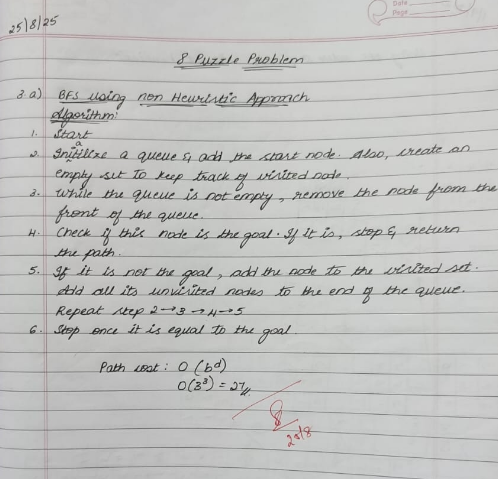 Date
Page
25/8/25
8 Puzzle Problem
3.a) BFS using non Heuristic Approach
Algorithm:
1. Start
2. Initilize a queue & add the start node. Also, create an
empty set to keep track of visited node.
3. While the queue is not empty, remove the node from the
front of the queue.
4. Check if this node is the goal. If it is, stop & return
the path.
5. If it is not the goal, add the node to the visited set.
Add all its unvisited nodes to the end of the queue.
Repeat step 2→3→4→5
6. Stop once it is equal to the goal.
Path cost: O(b^d)
O(3^3) = 27
25/8